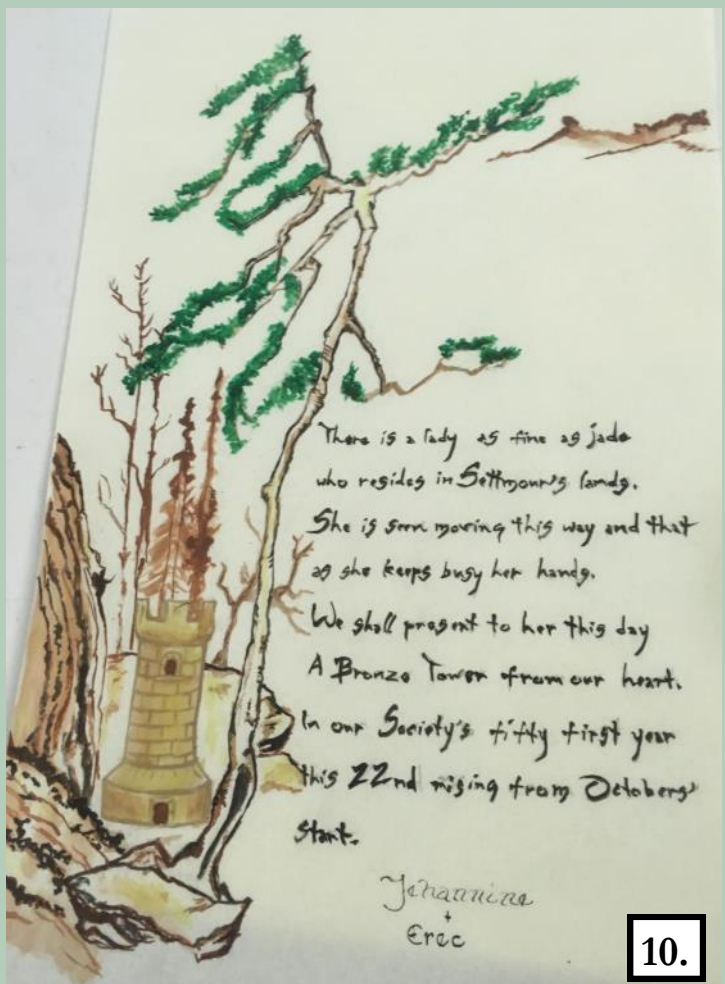 There is a lady as fine as jade
who resides in Settmour's lands.
She is seen moving this way and that
as she keeps busy her hands.
We shall present to her this day
A Bronze Tower from our heart.
In our Society's fifty first year
this 22nd rising from Octobers'
start.
Jehannine
+
Erec
10.